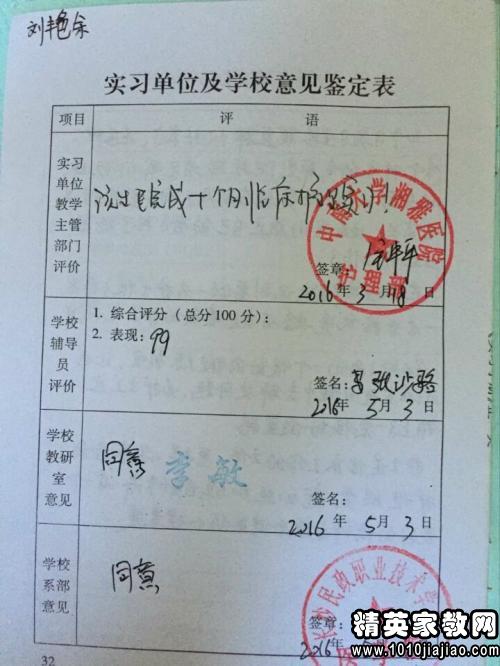 刘艳余
实习单位及学校意见鉴定表
项目 评 语
实习
单位
教学
主管
部门
评价
该生完成十个月临床护理实习!
中南大学湘雅医院
护理部
签章:
2016年3月18日
学校
辅导
员
评价
1. 综合评分(总分100分):
2. 表现:99
签名:
2016年5月3日
学校
教研
室
意见
同意
李敏
签名:
2016年5月3日
学校
系部
意见
同意
长沙民政职业技术学院
签章:
2016年
32
精英家教网
www.1010jiajiao.com